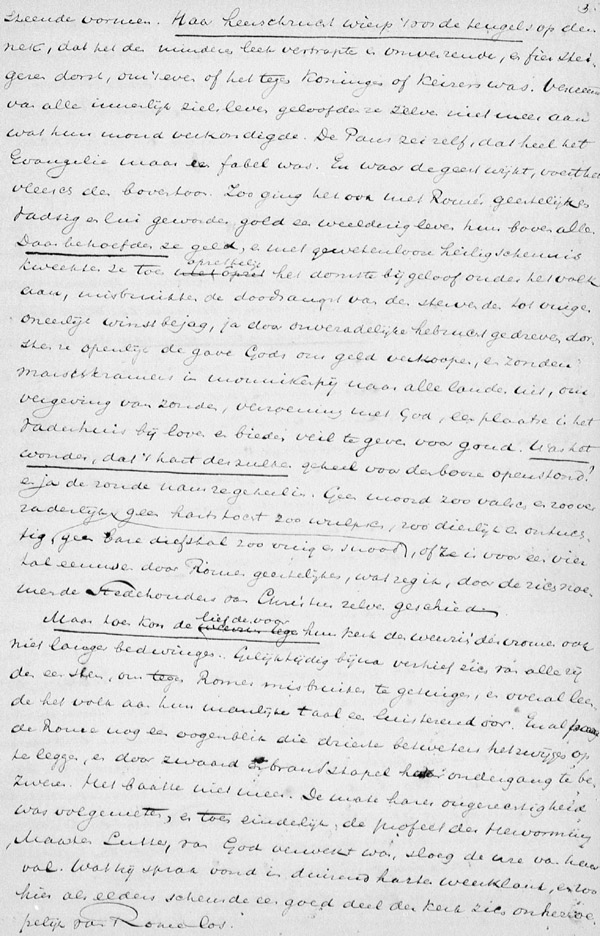 3.
steende vormen. Haar heerschzucht wierp 't oor de teugels op den
nek, dat het de mindere leek vertrapte in omverrende, en fier stei-
geren dorst, om 't even of het tegen Koningen of Keizers was. Vervreemd
van alle innerlijk zieleleven geloofden ze zelve niet meer aan
wat hun mond verkondigde. De Paus zei zelf, dat heel het
Evangelie maar een fabel was. En waar de geest wijkt, voert het
vleesch den boventoon. Zoo ging het ook met Rome's geestelijken
Vadsig en lui geworden, gold een weelderig leven hun boven alles.
Daar behoefden ze geld, en met gewetenlooze heiligschennis
kweekten ze toen opzettelijk het domste bijgeloof onder het volk
aan, misbruikten de doodsangst van de stervenden tot vuige
oneerlijk winstbejag, ja door onverzadelijke hebzucht gedreven, dor-
sten ze openlijk de gave Gods om geld verkoopen, en zonden
marskramers in monnikspij naar alle landen uit, om
vergeving van zonden, verzoening met God, een plaatse in het
Vaderhuis bij loven en bieden veil te geven voor goud. Was het
wonder, dat 't hart der zulken geheel voor den booze openstond?
en ja de zonde nam ze geheel in. Geen moord zoo valsch en zoo ver-
raderlijk, geen hartstocht zoo wulpsch, zoo dierlijk en ontuch-
tig, geen bare diefstal zoo vuig en snood, of ze is voor een vier
tal eeuwen door Rome's geestelijken, wat zeg ik, door de zich noe-
mende Stedehouders van Christus zelve geschied.
Maar toen kon de liefde voor hun kerk de weinig der vromen ook
niet langer bedwingen. Gelijktijdig bijna verhief zich van alle zij
den een stem, om tegen Romes misbruiken te getuigen, en overal leen
de het volk aan hun manlijke taal een luisterend oor. En al poog
de Rome nog een oogenblik die drieste betweters het zwijgen op
te leggen, en door zwaard en brandstapel hun ondergang te be-
zweren. Het baatte niet meer. De mate harer ongerechtigheid
was volgemeten, en toen eindelijk de profeet der Hervorming
Maarten Luther, van God verwekt was, sloeg de ure van haar
val. Wat hij sprak vond in duizend harten weerklank, en zoo
hier als elders scheurde een goed deel der kerk zich onherroe-
pelijk van Rome los.